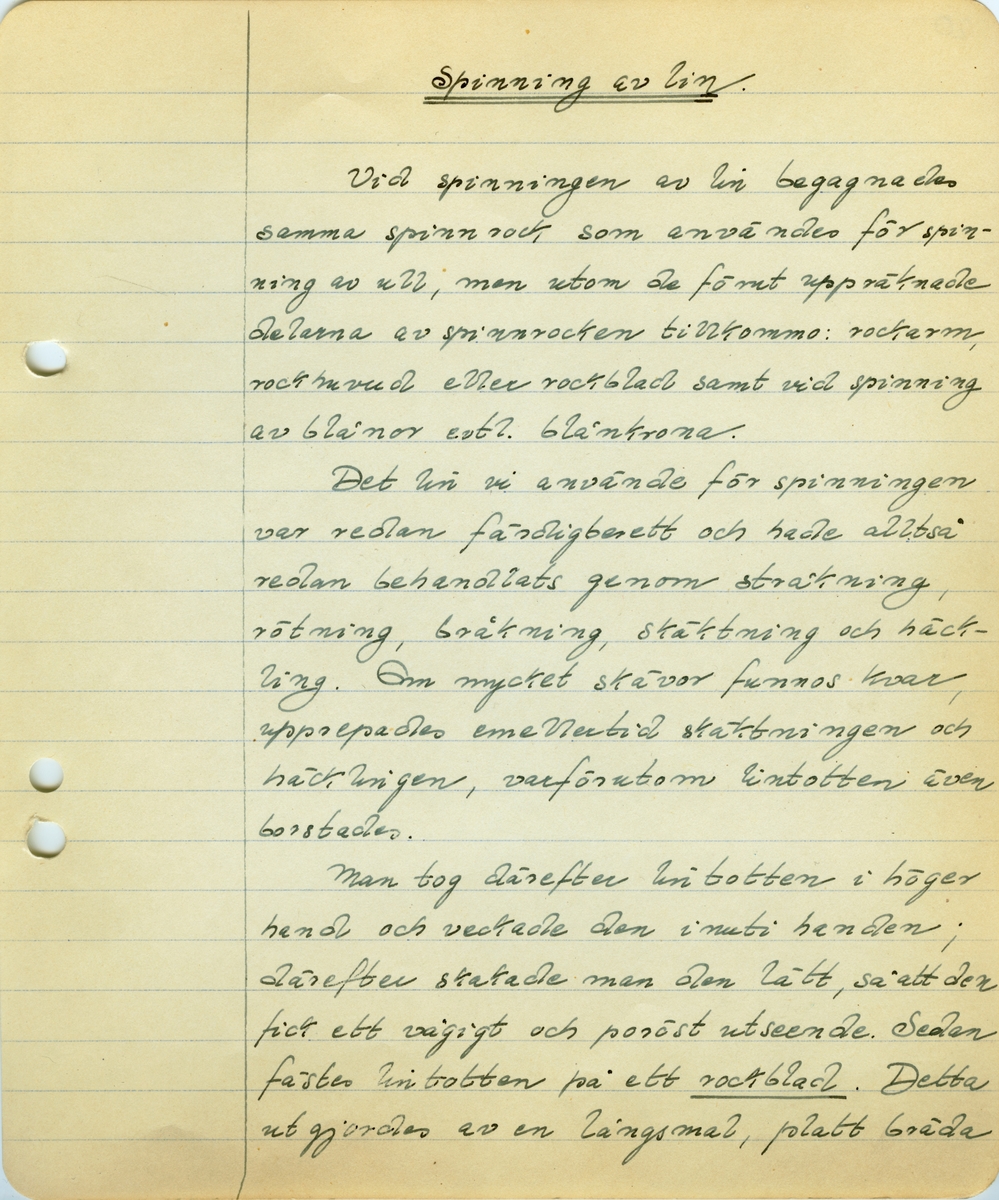 Spinning av lin.
Vid spinningen av lin begagnades
samma spinnrock, som användes för spin-
ning av ull, men utom de förut uppräknade
delarna av spinnrocken tillkommo: rockarm,
rockhuvud eller rockblad samt vid spinning
av blånor evtl. blånkrona.
Det lin vi använde för spinningen
var redan färdigberett och hade alltså
redan behandlats genom stråkning,
rötning, bråkning, skäktning och häck-
ling. Om mycket skävor funnos kvar,
upprepades emellertid skäktningen och
häcklingen, varförutom lintotten även
borstades.
Man tog därefter lintotten i höger
hand och veckade den inuti handen;
därefter skakade man den lätt, så att den
fick ett vågigt och poröst utseende. Sedan
fästes lintotten på ett rockblad. Detta
utgjordes av en långsmal, platt bräda